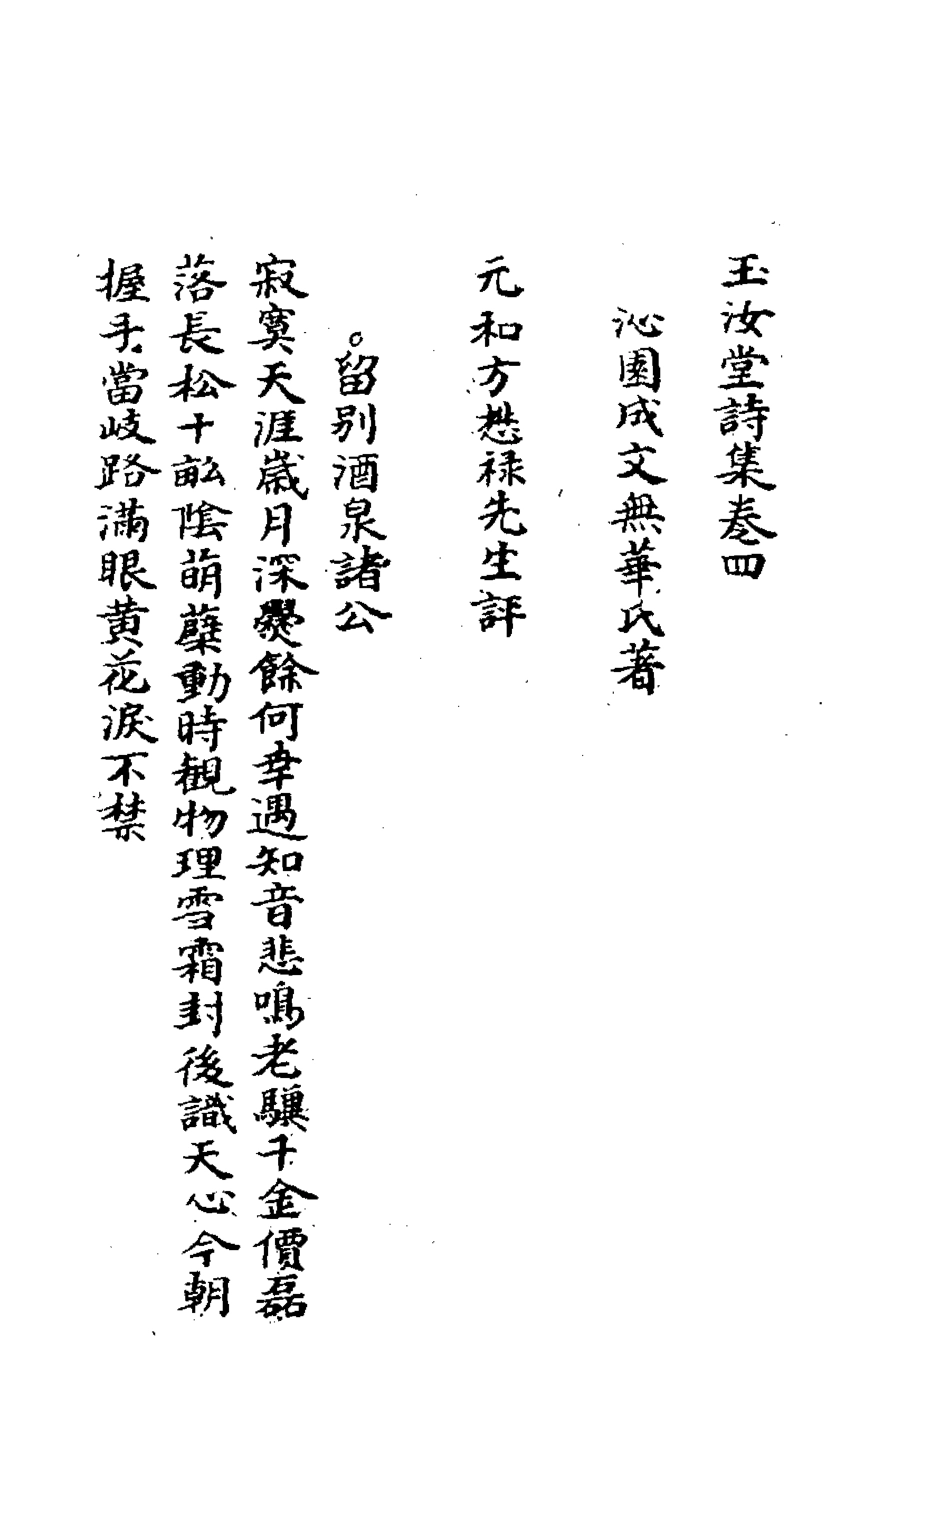 玉汝堂詩集卷四
沁園成文無華氏著
元和方懋禄先生評
。留别酒泉諸公
寂寞天涯歲月深爨餘何幸遇知音悲鳴老驥千金價磊
落長松十畝陰萌蘗動時觀物理雪霜封後識天心今朝
握手當岐路滿眼黄花淚不禁